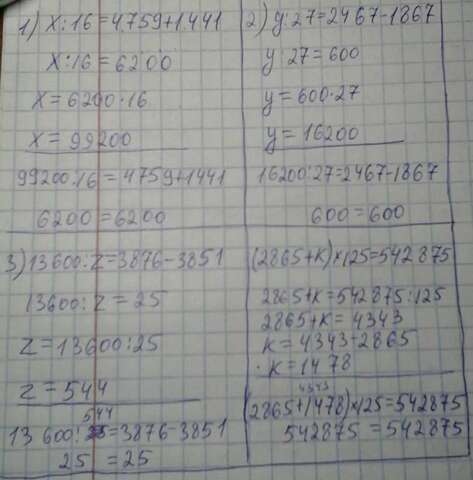 1) x:16=4759+1441
x:16=6200
x=6200·16
x=99200
99200:16=4759+1441
6200=6200
2) y:27=2467-1867
y:27=600
y=600·27
y=16200
16200:27=2467-1867
600=600
3) 13600:z=3876-3851
13600:z=25
z=13600:25
z=544
544
13600:25=3876-3851
25=25
(2865+k)×125=542875
2865+k=542875:125
2865+k=4343
k=4343-2865
k=1478
4343
(2865+1478)×125=542875
542875=542875